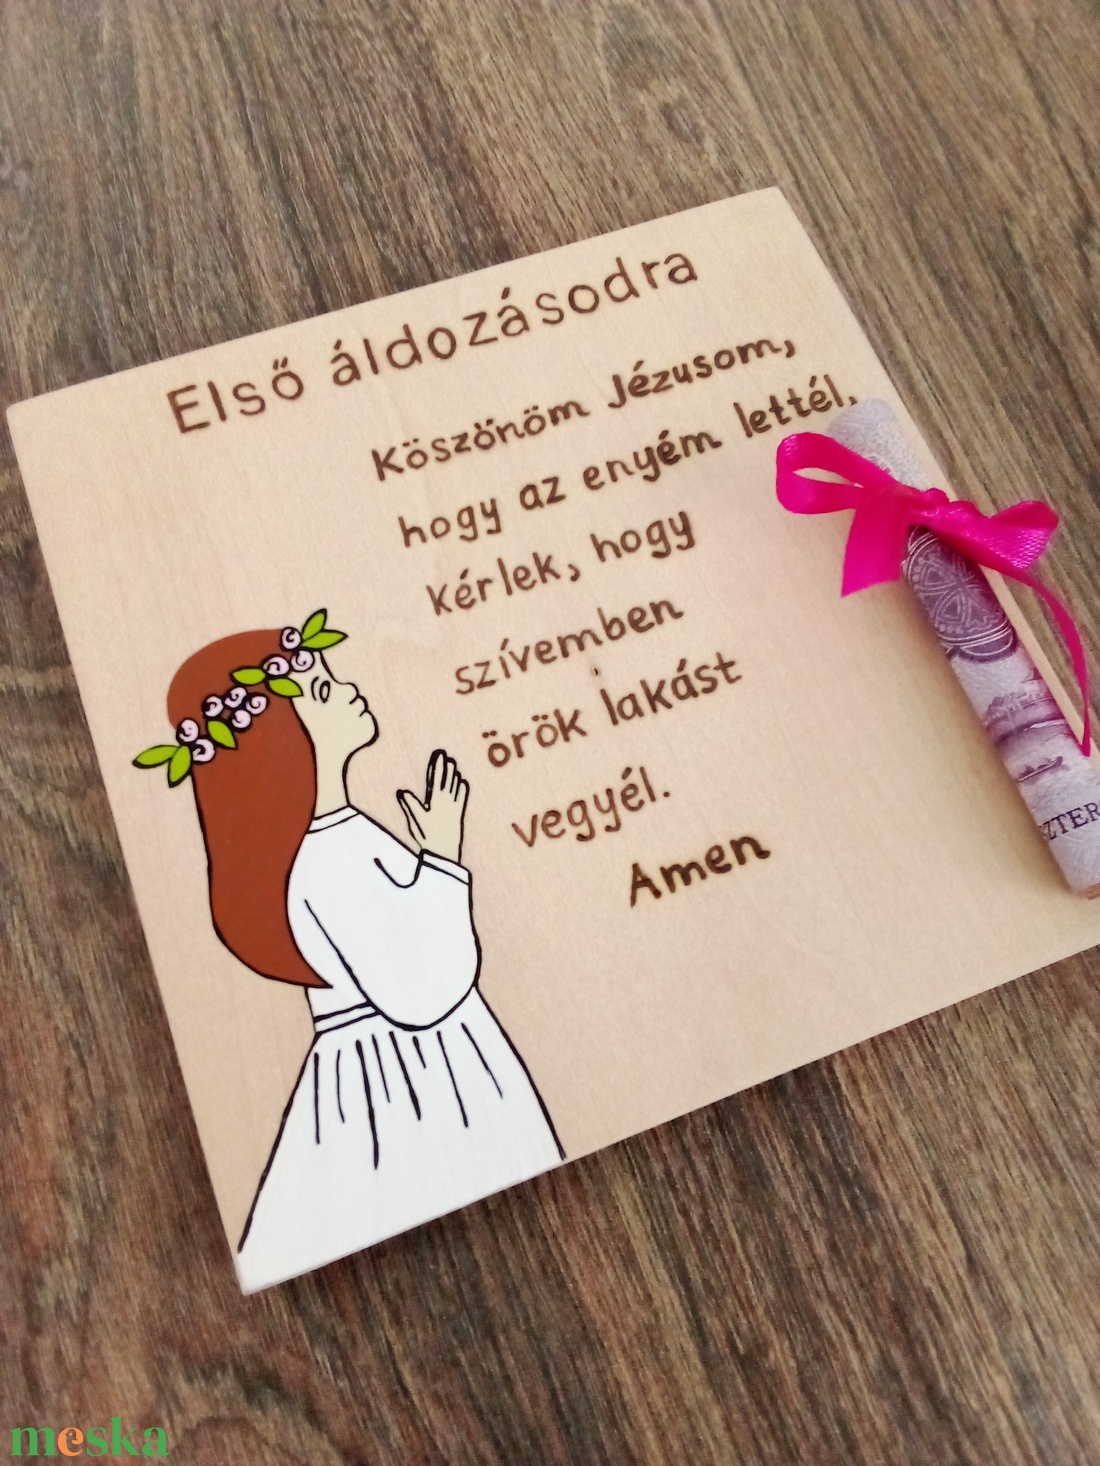 Első áldozásodra
Köszönöm Jézusom,
hogy az enyém lettél,
kérlek, hogy
szívemben
örök lakást
vegyél.
Amen
SZTERG
meska